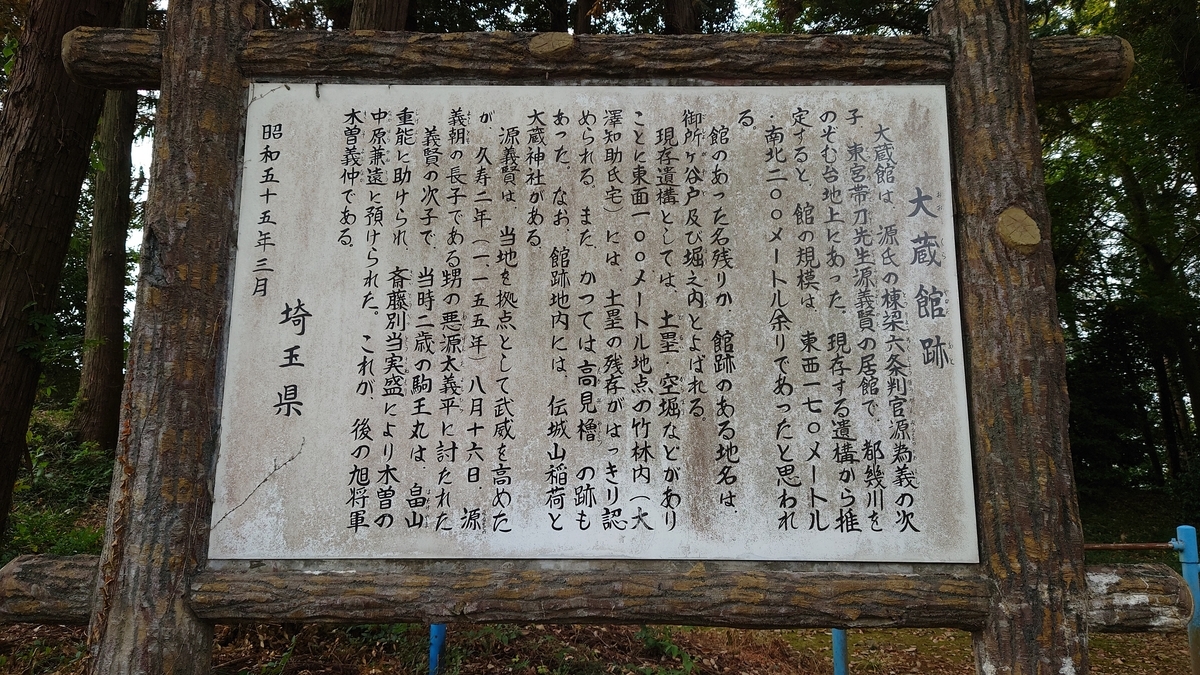 大蔵館跡
大蔵館は、源氏の棟梁六条判官源為義の次
子、東宮帯刀先生源義賢の居館で、都幾川を
のぞむ台地上にあった。現存する遺構から推
定すると、館の規模は、東西一七〇メートル
・南北二〇〇メートル余りであったと思われ
る。
館のあった名残りか、館跡のある地名は、
御所ヶ谷戸及び堀之内とよばれる。
現存遺構としては、土塁、空堀などがあり、
ことに東面一〇〇メートル地点の竹林内（大
澤知助氏宅）には、土塁の残存がはっきり認
められる。また、かつては高見櫓の跡も
あった。なお、館跡地内には、伝城山稲荷と
大蔵神社がある。
源義賢は、当地を拠点として武威を高めた
が、久寿二年（一一五五年）八月十六日、源
義朝の長子である甥の悪源太義平に討たれた。
義賢の次子で、当時二歳の駒王丸は、畠山
重能に助けられ、斎藤別当実盛により木曽の
中原兼遠に預けられた。これが、後の旭将軍
木曽義仲である。
昭和五十五年三月
埼玉県